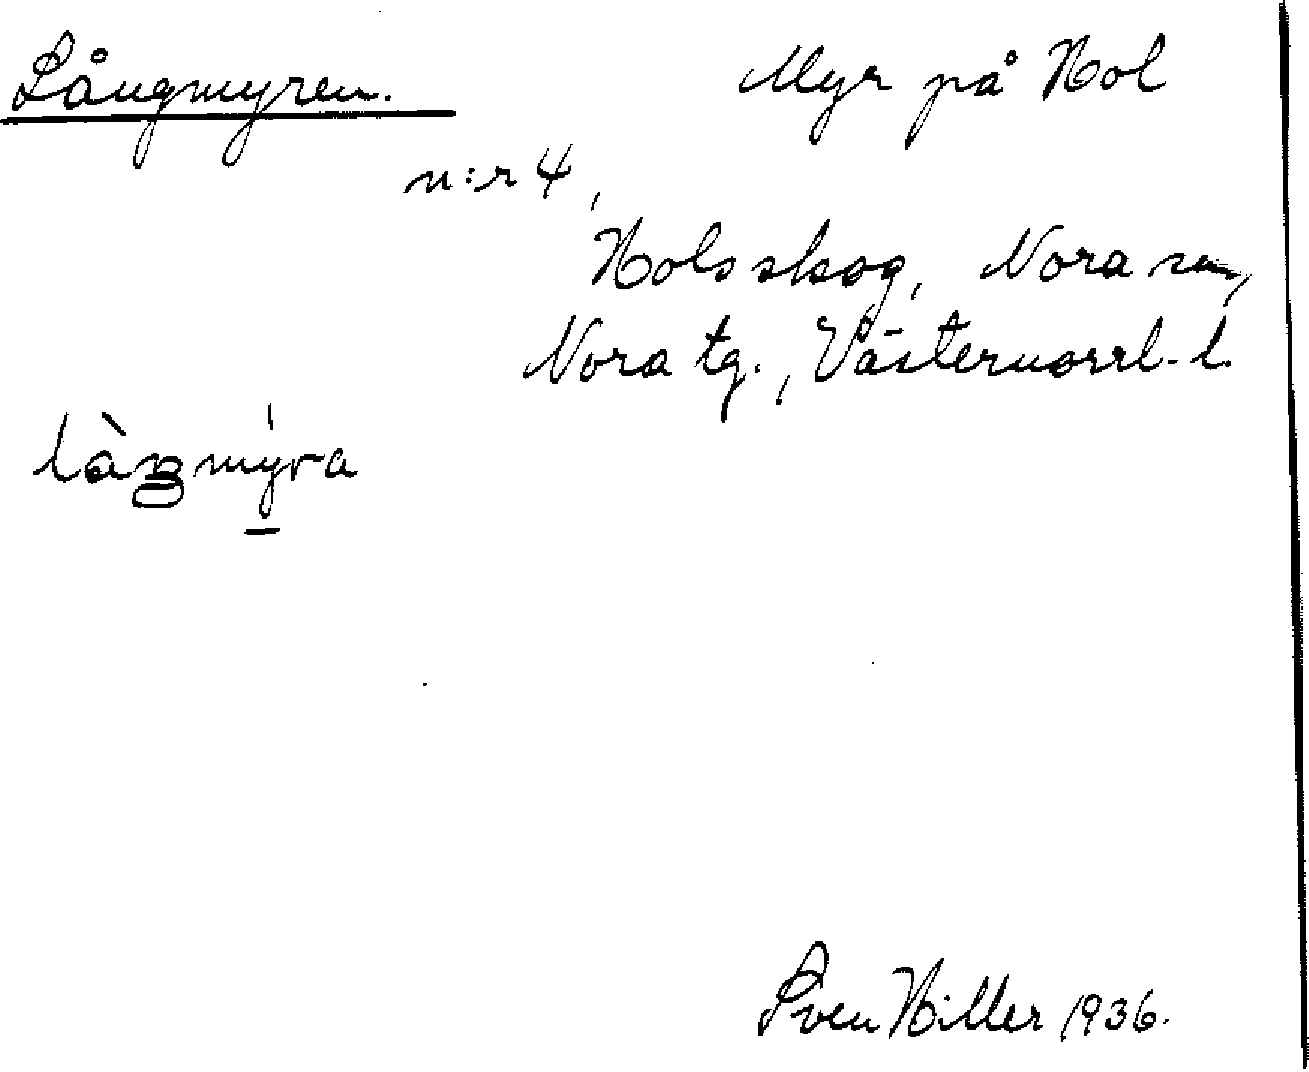 Långmyren. Myr på Hol
n:r 4,
Hols skog, Nora sn,
Nora tg., Västernorrl. l.
Sven Hiller 1936.